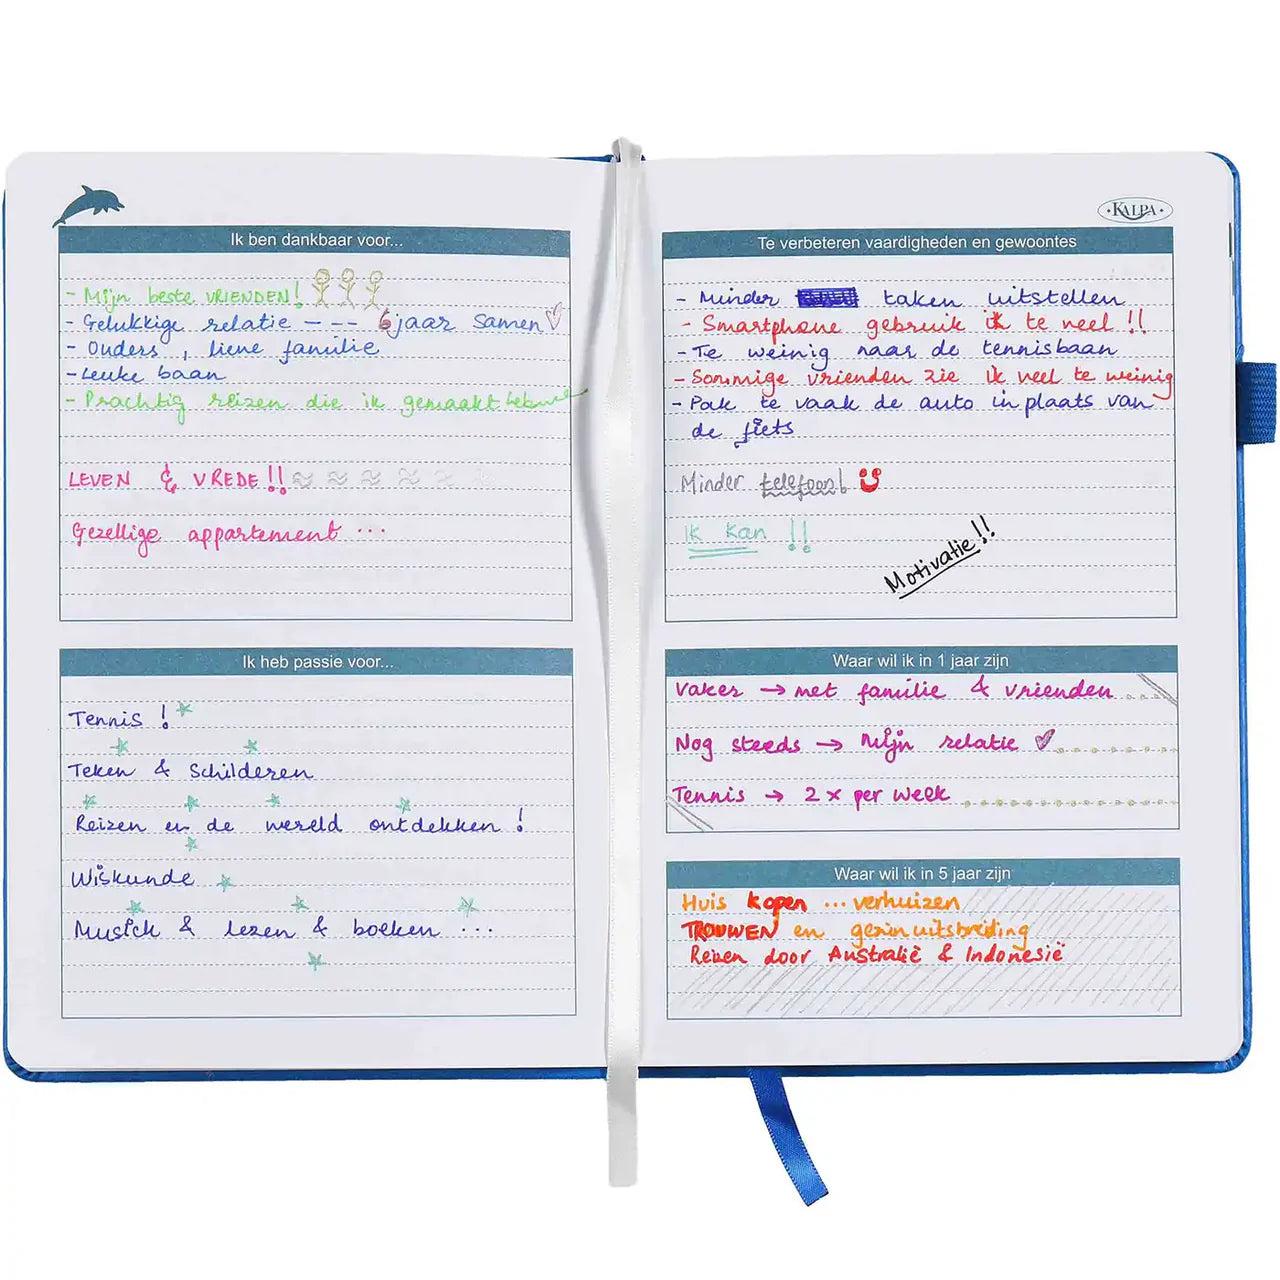 Ik ben dankbaar voor...
- Mijn beste VRIENDEN!
- Gelukkige relatie - - - 6 jaar samen
- Ouders, lieve familie
- Leuke baan
- Prachtig reizen die ik gemaakt
LEVEN & VREDE!!
Gezellige appartement ...
Ik heb passie voor...
Tennis !
Teken & Schilderen
Reizen en de wereld ontdekken !
Wiskunde
Musick & lezen & boeken ...
KALPA
Te verbeteren vaardigheden en gewoontes
- Minder taken uitstellen
- Smartphone gebruik ik te veel !!
- Te weinig naar de tennisbaan
- Sommige vrienden zie ik veel te weinig
- Pak te vaak de auto in plaats van
de fiets
Minder telefoon!
Ik kan !!
Motivatie!!
Waar wil ik in 1 jaar zijn
Vaker → met familie & vrienden
Nog steeds → Mijn relatie
Tennis → 2 x per week
Waar wil ik in 5 jaar zijn
Huis kopen ... verhuizen
TROUWEN en gezinuitsbreiding
Reizen door Australië & Indonesië